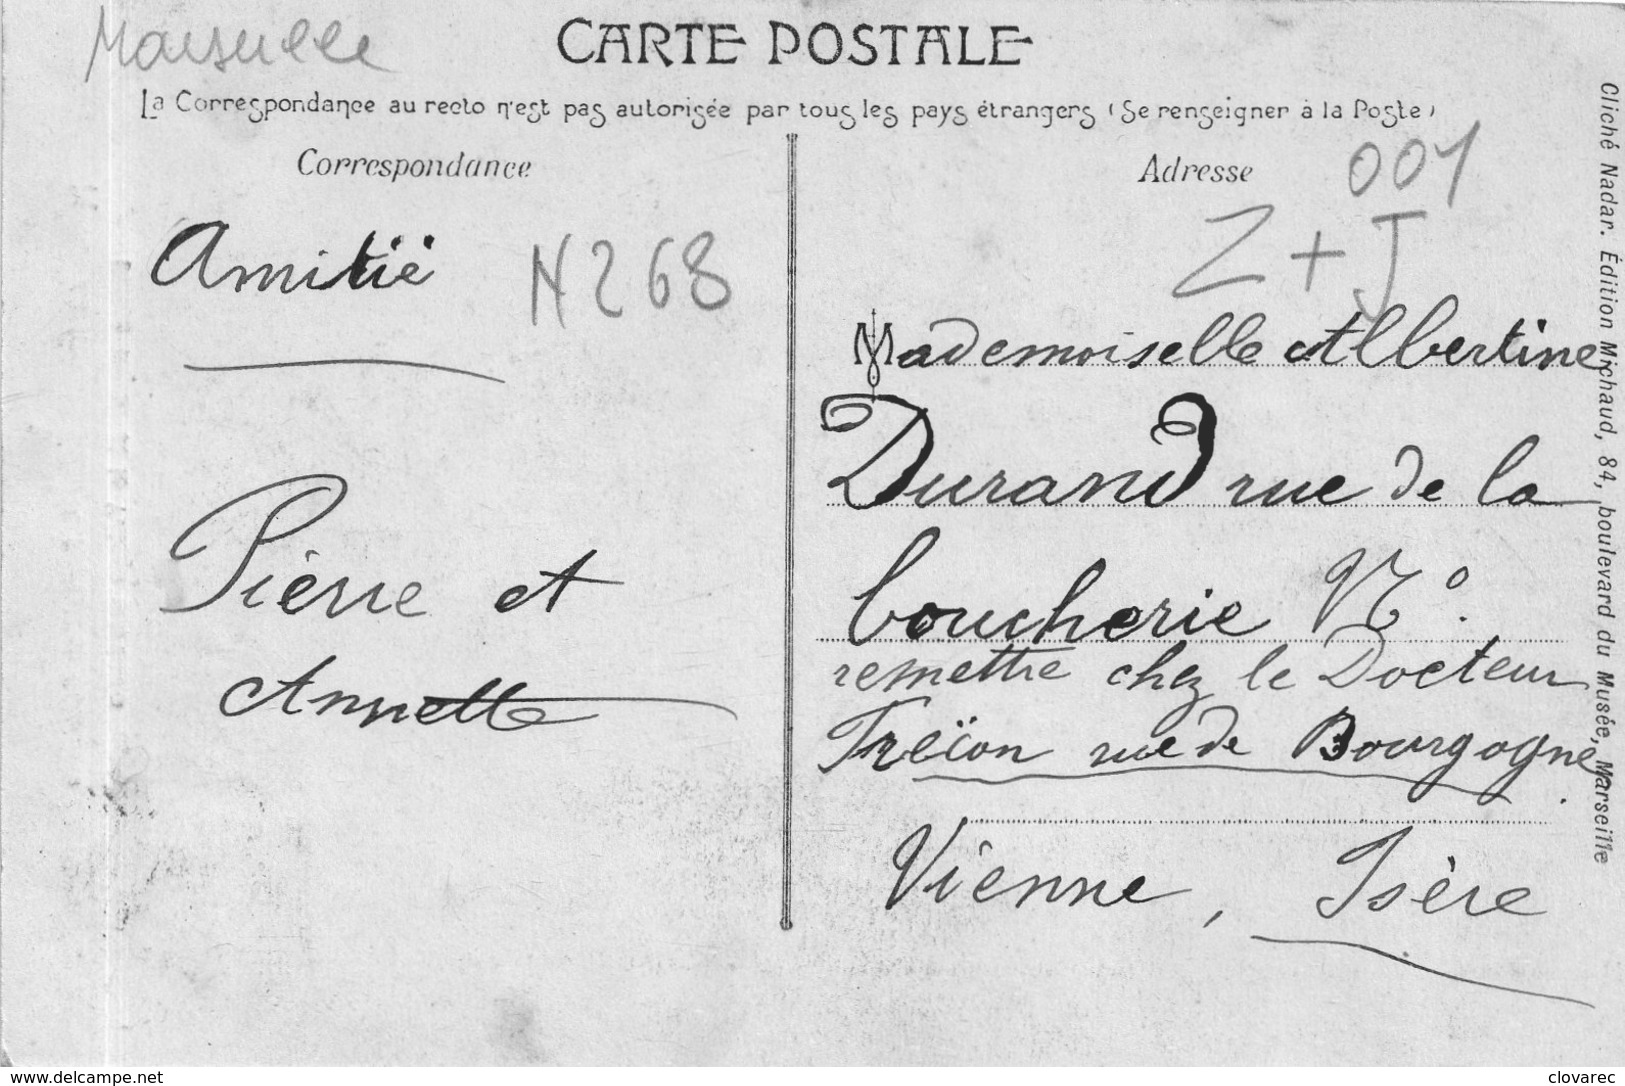 Marseille
CARTE POSTALE
La Correspondance au recto n'est pas autorisée par tous les pays étrangers (Se renseigner à la Poste)
Correspondance
Amitié
N268
Pierre et
Annette
Adresse
001
Z + J
Mademoiselle Albertine
Durand rue de la
boucherie Nº.
remettre chez le Docteur
Treïon rue de Bourgogne
Vienne, Isère
Cliché Nadar. Édition Michaud, 84, boulevard du Musée, Marseille
www.delcampe.net
clovarec